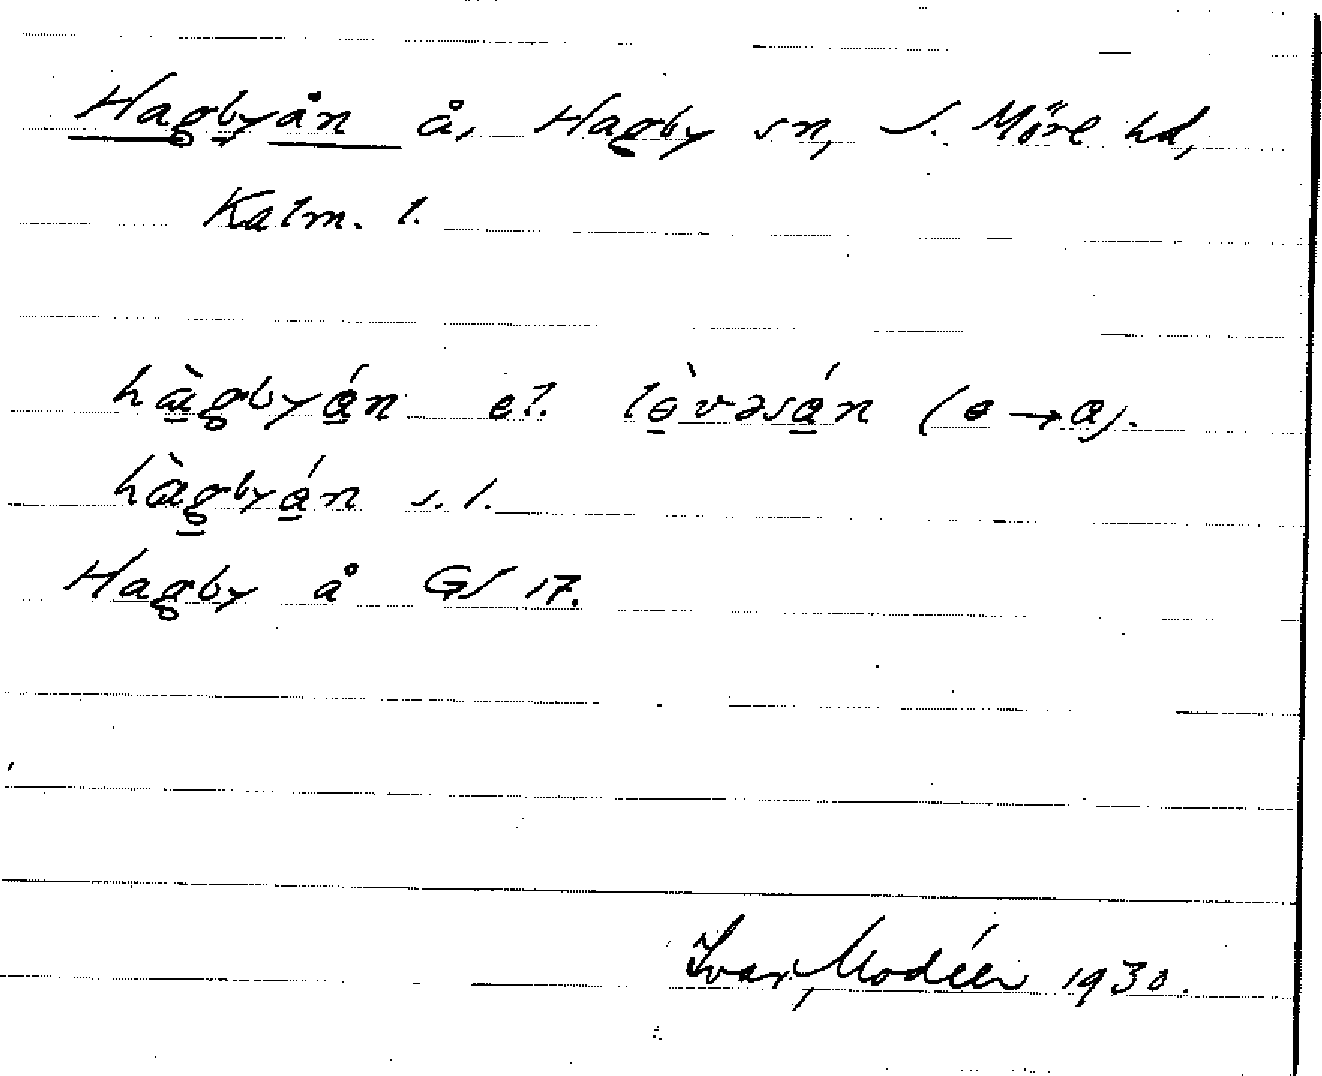 Hagbyån å, Hagby sn, S. Möre hd,
Kalm. l.
hàgbyán el. lèvəsán (e → a).
hàgbyán s. l.
Hagby å GS 17.
Ivar Modéer 1930.